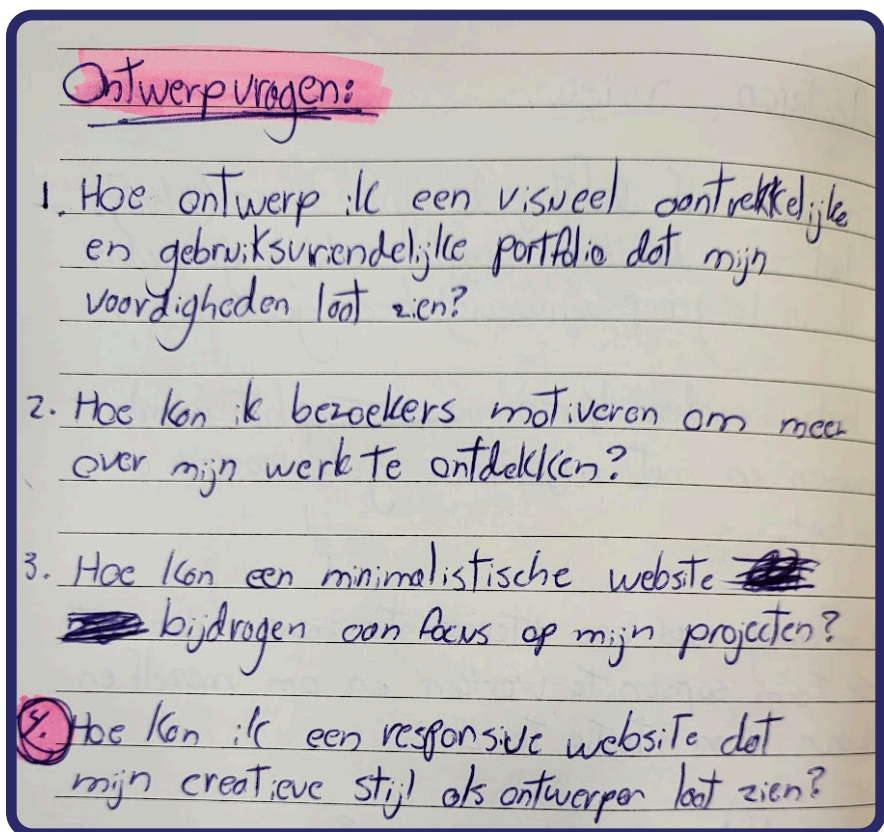 Ontwerpvragen:
1. Hoe ontwerp ik een visueel aantrekkelijke
en gebruiksvriendelijke portfolio dat mijn
voordigheden laat zien?
2. Hoe kan ik bezoekers motiveren om meer
over mijn werk te ontdekken?
3. Hoe kan een minimalistische website
bijdragen aan focus op mijn projecten?
4. Hoe kan ik een responsive website dat
mijn creatieve stijl als ontwerper laat zien?